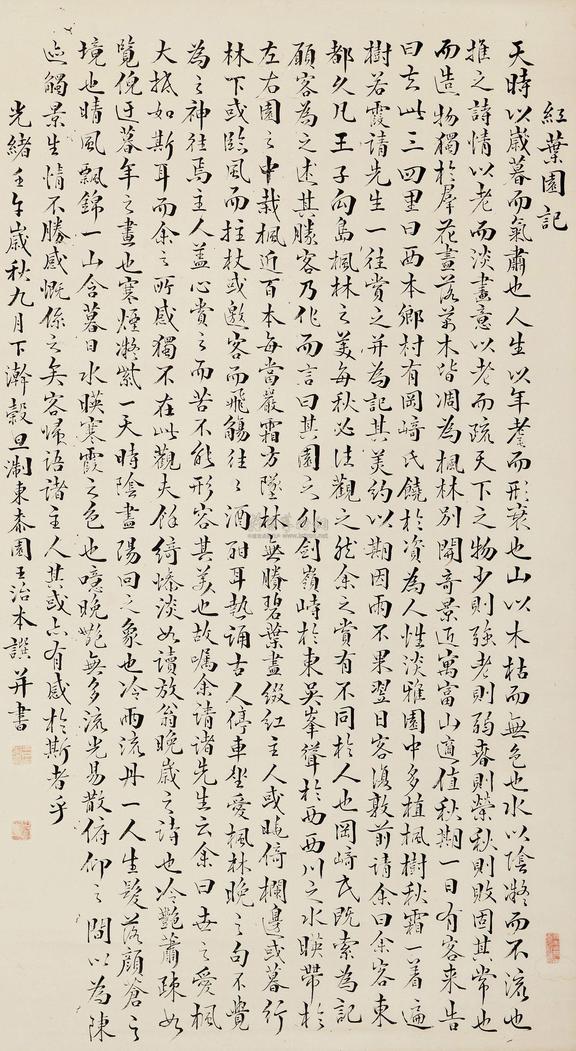 紅葉園記
天時以歲暮而氣肅也人生以年耄而形衰也山以木枯而無色也水以陰凝而不流也
推之詩情以老而淡畫意以老而疏天下之物少則強老則弱春則榮秋則敗固其常也
而造物獨於羣花盡落萬木皆凋為楓林別開奇景近寓富山適值秋期一日有客來告
曰去此三四里曰西本鄉村有岡崎氏饒於資為人性淡雅園中多植楓樹秋霜一着遍
樹若霞請先生一往賞之并為記其美約以期因雨不果翌日客復敦前請余曰余客東
都久凡王子向島楓林之美每秋必往觀之然余之賞有不同於人也岡崎氏既索為記
願客為之述其勝客乃作而言曰其園之外劍嶺峙於東吳峯聳於西西川之水暎帶於
左右園之中栽楓近百本每當嚴霜方墜林無賸碧葉盡綴紅主人或曉倚欄邊或暮行
林下或臨風而拄杖或邀客而飛觴往々酒酣耳熱誦古人停車坐愛楓林晚之句不覺
為之神往焉主人蓋心賞之而苦不能形容其美也故囑余請諸先生云余曰世之愛楓
大抵如斯耳而余之所感獨不在此觀夫餘綺慘淡如讀放翁晚歲之詩也冷艷蕭疎如
覽倪迂暮年之畫也寒煙凝紫一天時陰盡陽回之象也冷雨流丹一人生髮落顏蒼之
境也晴風飄錦一山含暮日水暎寒霞之色也噫晚艷無多流光易散俯仰之間以為陳
迹觸景生情不勝感慨係之矣客歸語諸主人其或亦有感於斯者乎
光緒壬午歲秋九月下澣穀旦淛東桼園王治本譔并書